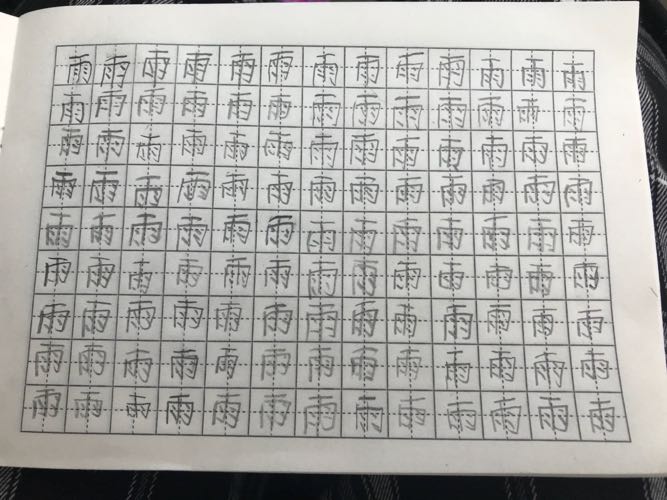 雨雨雨雨雨雨雨雨雨雨雨雨雨
雨雨雨雨雨雨雨雨雨雨雨雨雨
雨雨雨雨雨雨雨雨雨雨雨雨雨
雨雨雨雨雨雨雨雨雨雨雨雨雨
雨雨雨雨雨雨雨雨雨雨雨雨雨
雨雨雨雨雨雨雨雨雨雨雨雨雨
雨雨雨雨雨雨雨雨雨雨雨雨雨
雨雨雨雨雨雨雨雨雨雨雨雨雨
雨雨雨雨雨雨雨雨雨雨雨雨雨